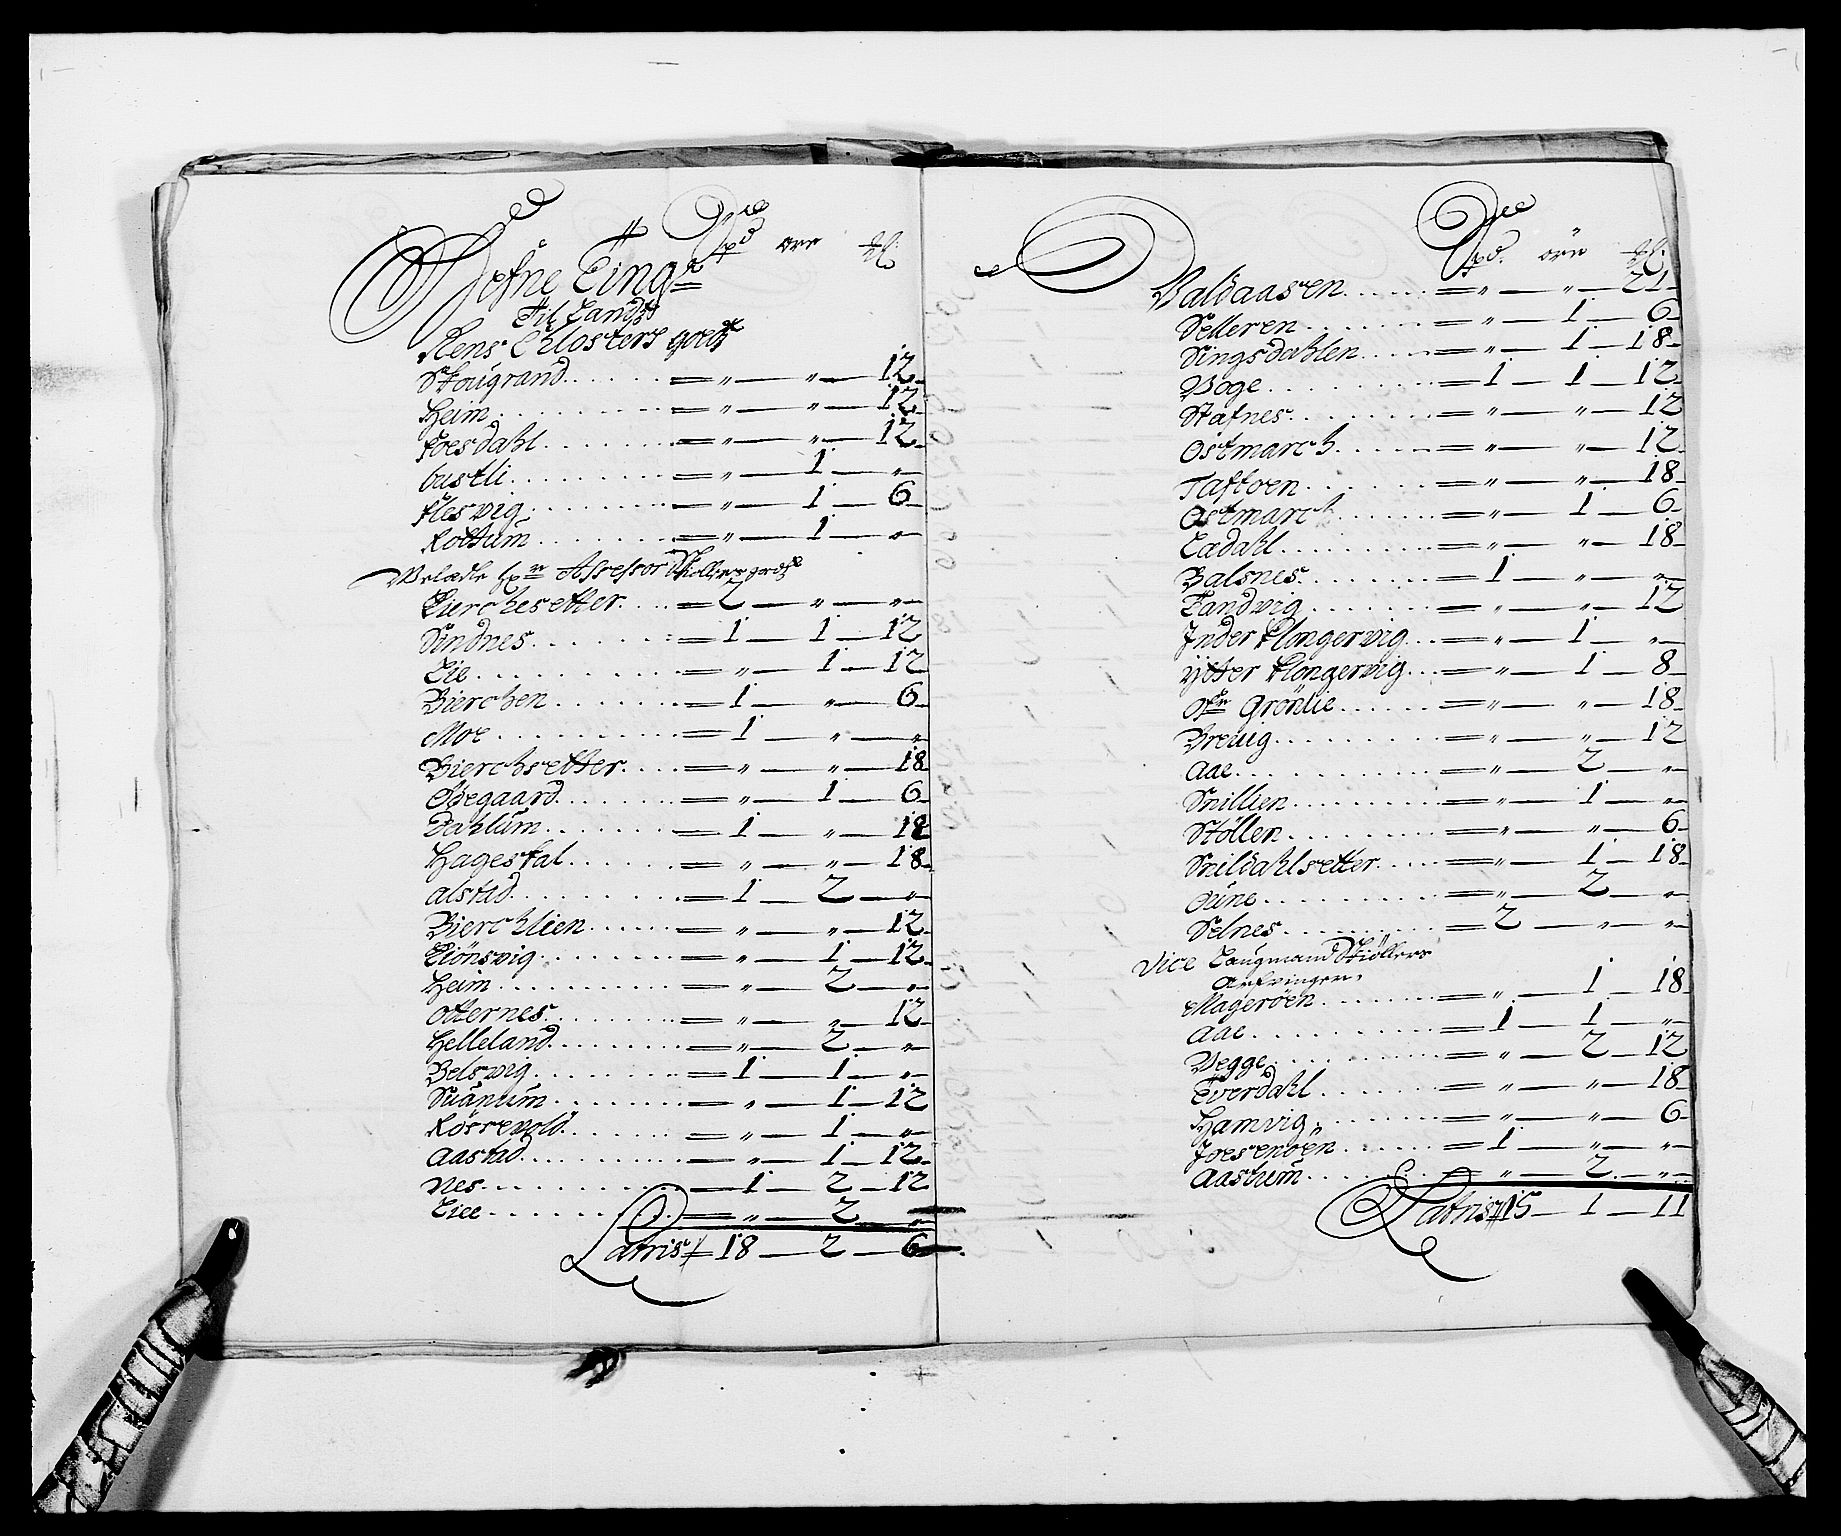 Hefne Ting=
Spd ore
Til Landz
Rens Closters godz
Skougrand....... = " — " — 12
Heim............ = " — " — 12
foesdahl........ = " — " — 12
bustli.......... = " — 1 — "
flesvig......... = " — 1 — 6
Rottum.......... = " — 1 — "
Velædle Hr Assessor Schøllers godz
Kierchesetter... = 2 — " — "
Sindnes......... = 1 — 1 — 12
Lie............. = " — 1 — 12
Bierchen........ = 1 — " — 6
Moe............. = 1 — " — "
Bierchsetter.... = " — " — 18
Ødegaard........ = " — 1 — 6
Dahlum.......... = 1 — " — 18
Hageskal........ = " — " — 18
alstad.......... = 1 — 2 — "
Bierchlien...... = " — " — 12
Kiönsvig........ = " — 1 — 12
Heim............ = " — 2 — "
otternes........ = " — " — 12
Helleland....... = " — 2 — "
Belsvig......... = 1 — 1 — "
Suanum.......... = " — 1 — 12
Rössevold....... = " — 1 — "
Aastad.......... = " — 1 — 12
Nes............. = 1 — 2 — 12
Liee............ = " — 2 — "
Latris 18 — 2 — 6
Spd. öre
Valdaasen....... = " — " — 21
Selleren........ = " — 1 — 6
Singsdahlen..... = " — 1 — 18
Woge............ = 1 — 1 — 12
Stafnes......... = " — " — 12
Ostmarch........ = " — " — 12
Taftoen......... = " — " — 18
Ostmarch........ = " — 1 — 6
Lædahl.......... = " — " — 18
Balsnes......... = 1 — " — "
Sandvig......... = " — " — 12
Inder Klongervig... = " — 1 — "
Ytter Klongervig... = " — 1 — 8
Grönlie...... = " — " — 18
Brevig.......... = " — " — 12
Aae............. = " — 2 — "
Snillien........ = " — 1 — "
Stöllen......... = " — " — 6
Snildahlsetter.. = " — 1 — 18
Oune............ = " — 2 — "
Selnes.......... = 2 — " — "
Vice Laugmand Skiöllers
Arfvinger
Magerøen........ = " — 1 — 18
Aae............. = 1 — 1 — "
Vegge........... = " — 2 — 12
Tverdahl........ = " — " — 18
Hamvig.......... = " — " — 6
Joesenöen....... = 1 — " — "
Aastum.......... = " — 2 — "
Latris 15 — 1 — 11